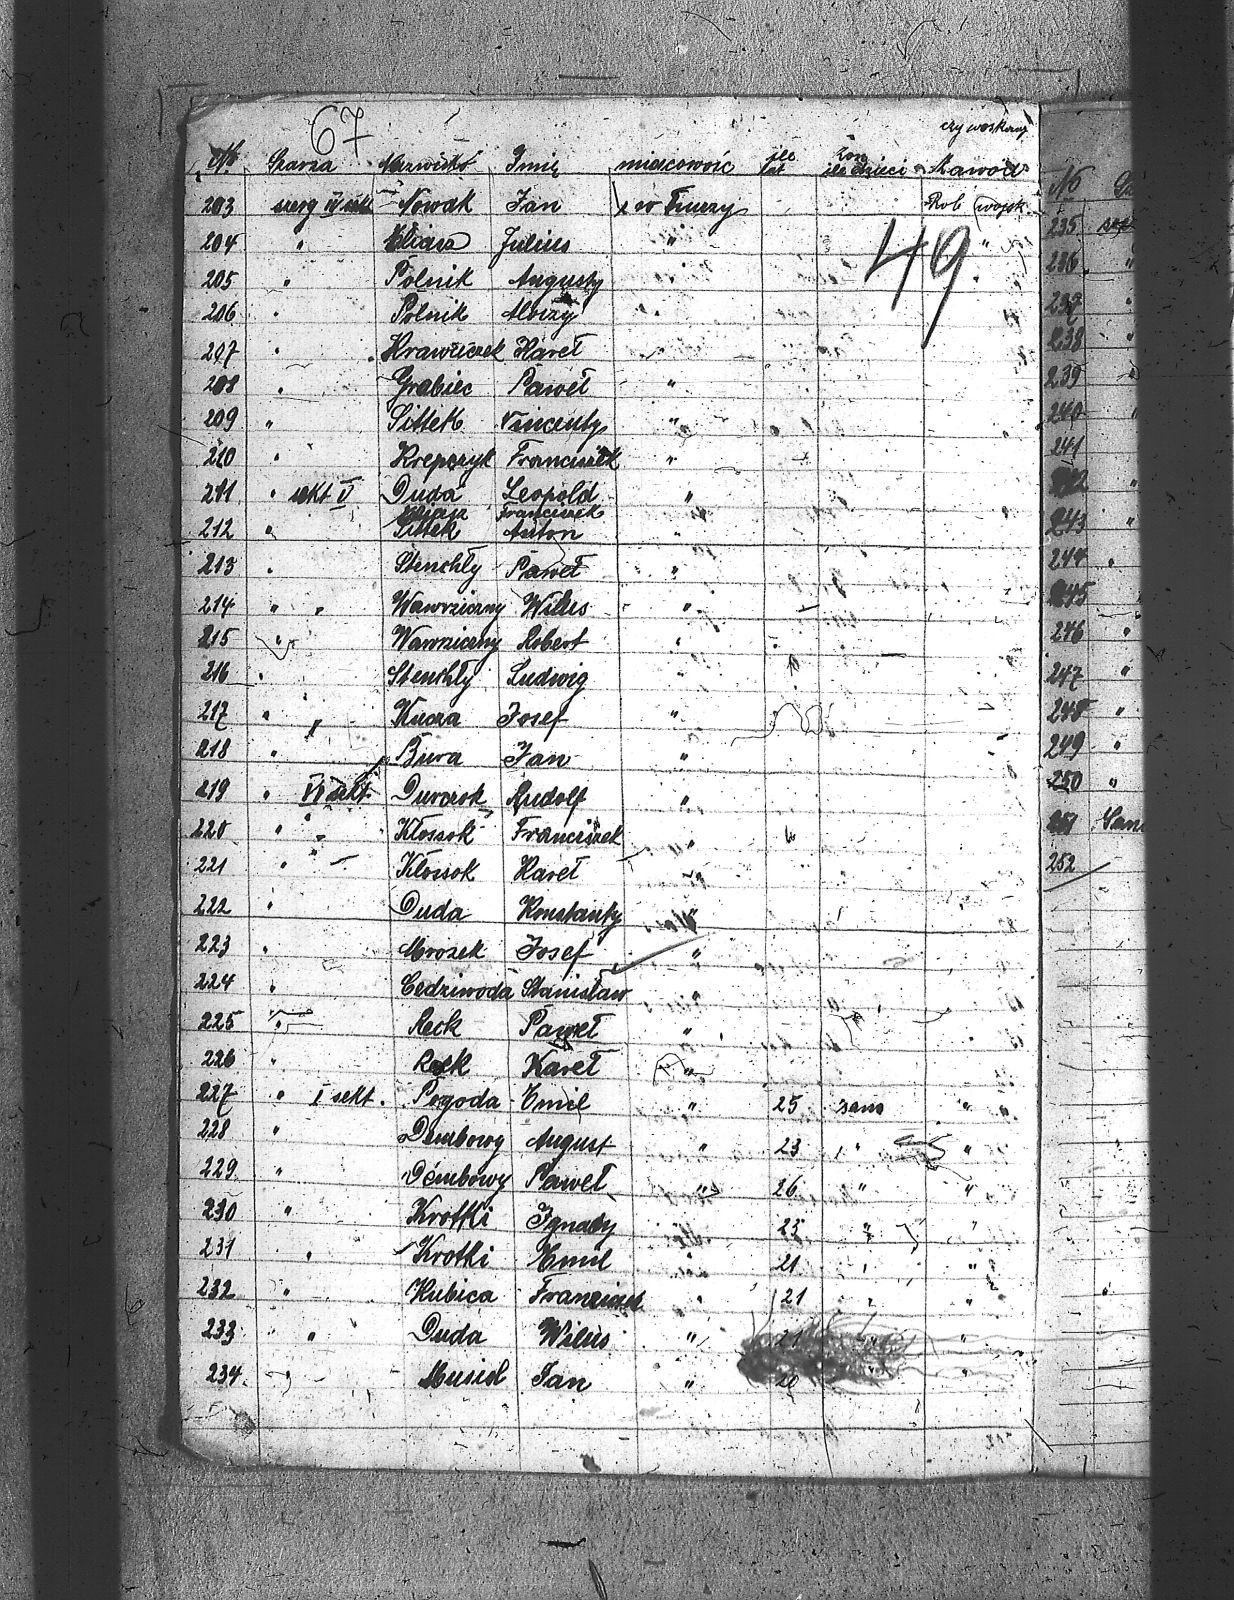 67
czy wojskowy
№ Szarza Nazwisko Imię miejscowość ile lat żon. ile dzieci Zawód
203 szereg IV sekt Nowak Jan w Turzy Rob wojsk
204 " Eliasz Julius " "
49
205 " Polnik Augusty
206 " Polnik Aloizy "
207 " Krawiczek Kareł
208 " Grabiec Paweł "
209 " Sittek Vincenty "
210 " Krepczyk Franciszek "
211 " sekt V Duda Leopold "
Eliasz Franciszek "
212 " Sittek Anton "
213 " Stenchły Paweł "
214 " " Wawrziczny Wilus "
215 " Wawrziczny Robert "
216 " Stenchły Ludwig "
217 " " Kucza Josef "
218 " Bura Jan "
219 " VI sekt. Durczok Rudolf "
220 " " Kłossok Franciszek "
221 " " Kłossok Kareł "
222 " Duda Konstanty "
223 " Mrozek Josef "
224 " Cedziwoda Stanisław "
225 " Reck Paweł "
226 " Reck Kareł "
227 " I sekt. Pogoda Emil " 25 sam "
228 " Dembowy August " 23 " "
229 " Dembowy Paweł " 26 " "
230 " Krotki Ignacy 25 " "
231 " Krotki Emil " 21 " "
232 " Kubica Franciszek " 21 " "
233 " Duda Wilus " 21 " "
234 " Musiol Jan " "
№
235
236
238
239
240
241
243 "
244 "
245
246 "
247 "
249 "
250 "
251
252